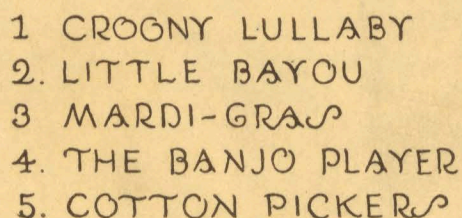 1 CROONY LULLABY
2. LITTLE BAYOU
3 MARDI-GRAS
4. THE BANJO PLAYER
5. COTTON PICKERS